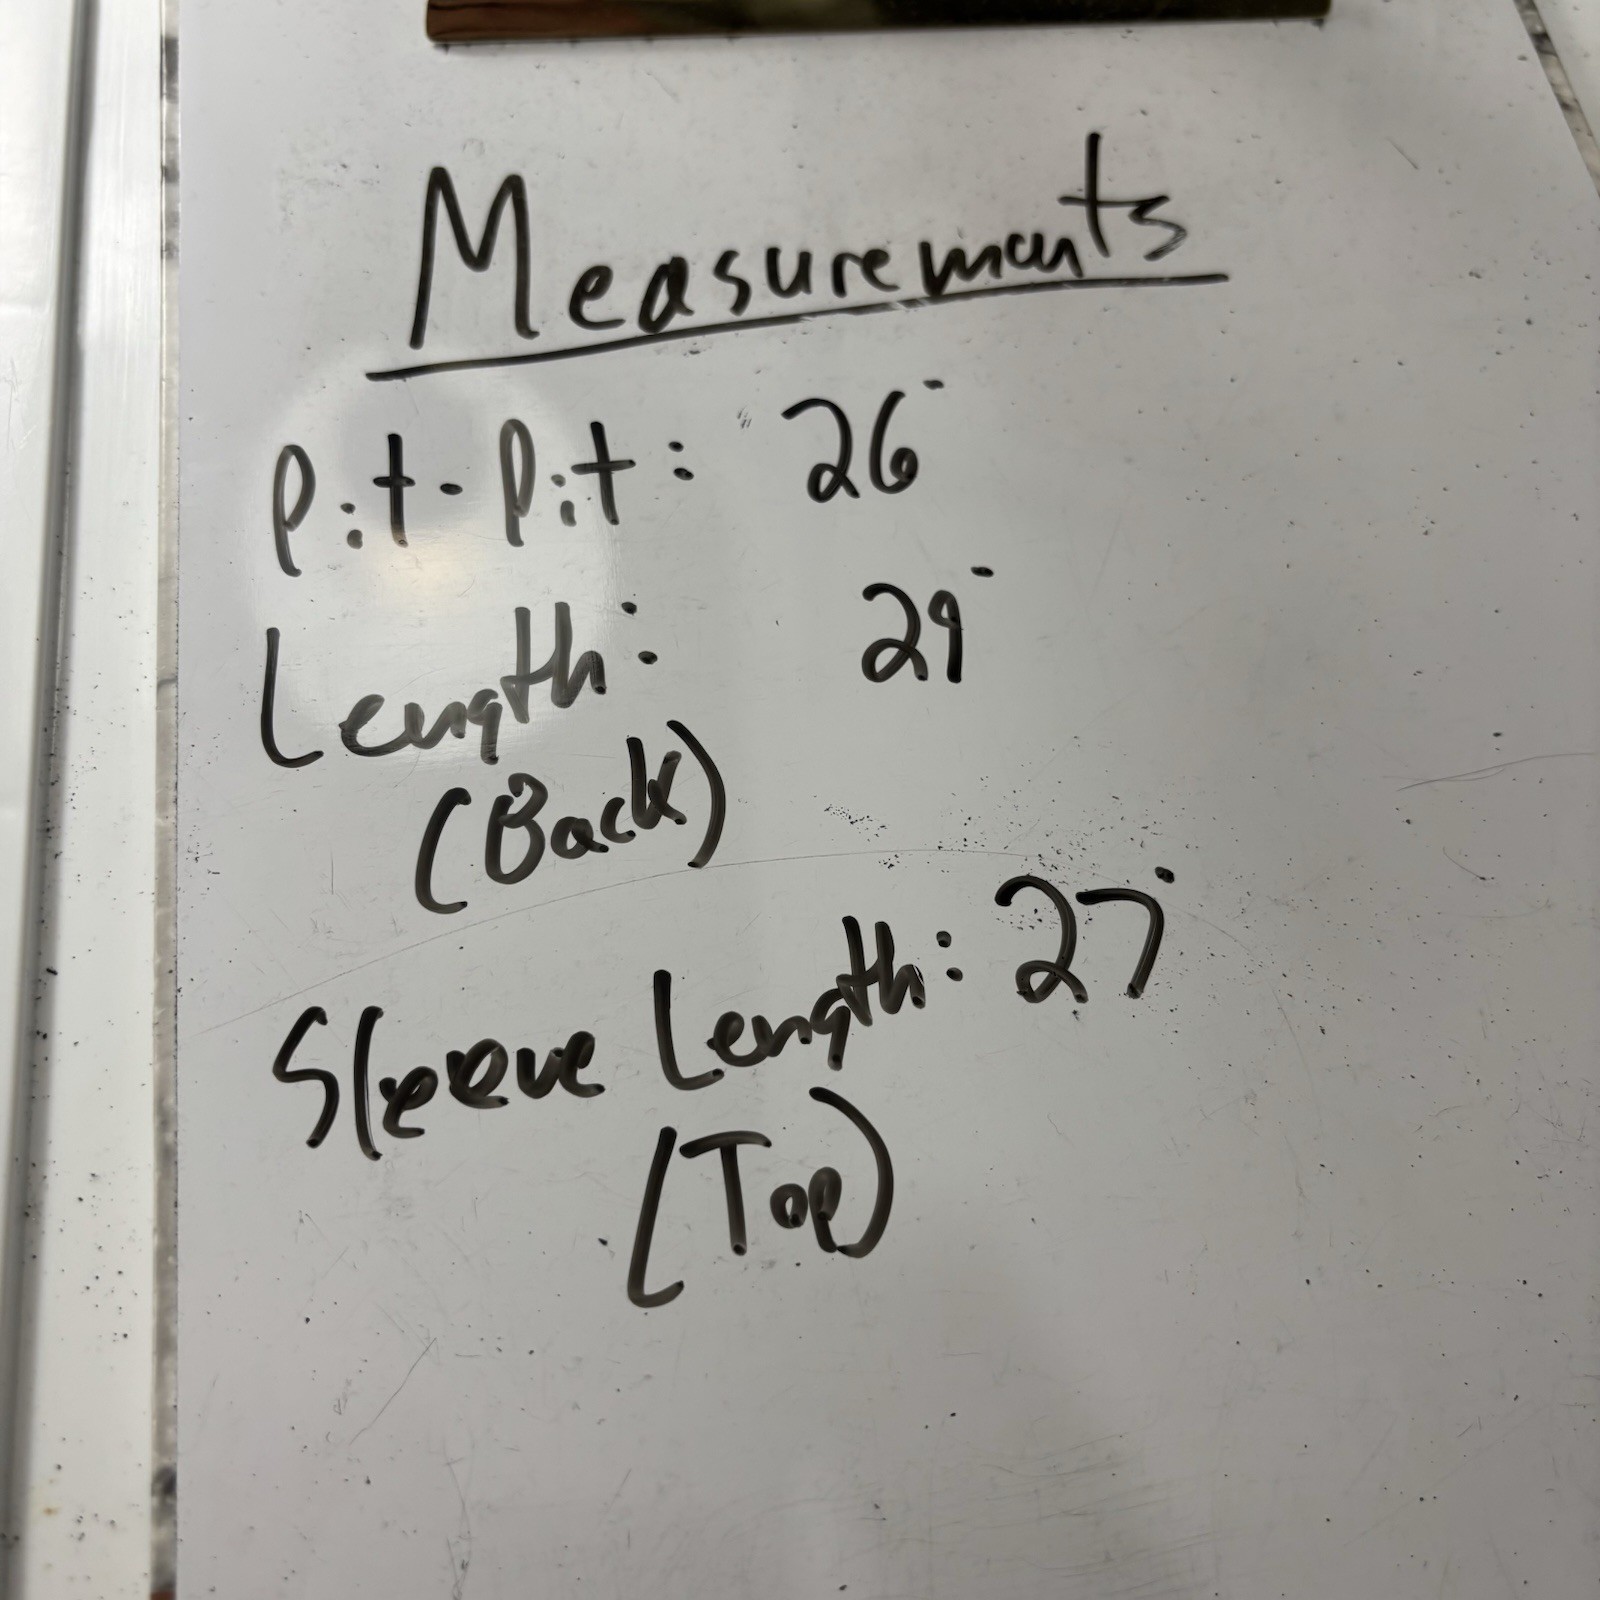 Measurements
Pit-Pit: 26"
Length: 29"
(Back)
Sleeve Length: 27"
(Top)